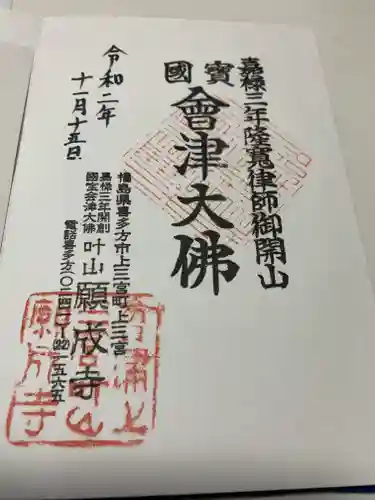 嘉祿三年隆寛律師御開山
國寶
會津大佛
令和二年
十一月十五日
福島県喜多方市上三宮町上三宮
嘉祿三年開創
國宝会津大佛
叶山願成寺
電話喜多方(〇二四一)-(22)一五六五
願成寺